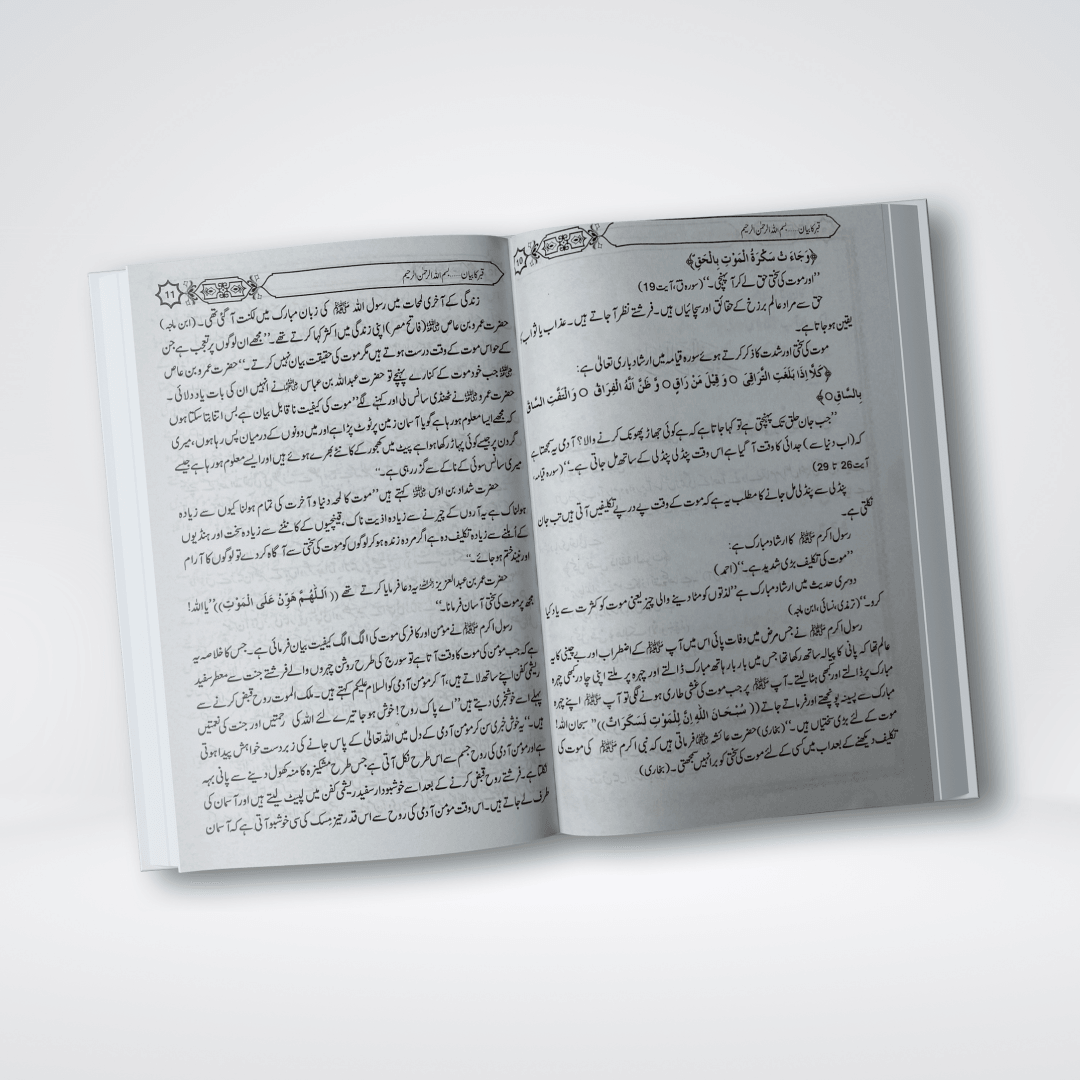 قبر کا بیان ..... بسم اللہ الرحمٰن الرحیم
10
﴿وَجَاءَ تْ سَكْرَةُ الْمَوْتِ بِالْحَقِّ﴾
’’اور موت کی سختی حق لے کر آ پہنچی۔‘‘ (سورہ ق، آیت 19)
حق سے مراد عالم برزخ کے حقائق اور سچائیاں ہیں۔ فرشتے نظر آ جاتے ہیں۔ عذاب یا ثواب
یقین ہو جاتا ہے۔
موت کی سختی اور شدت کا ذکر کرتے ہوئے سورہ قیامہ میں ارشاد باری تعالیٰ ہے:
﴿كَلَّا إِذَا بَلَغَتِ التَّرَاقِيَ ○ وَ قِيْلَ مَنْ رَاقٍ ○ وَّ ظَنَّ أَنَّهُ الْفِرَاقُ ○ وَ الْتَفَّتِ السَّاقُ
بِالسَّاقِ ○﴾
’’جب جان حلق تک پہنچتی ہے تو کہا جاتا ہے کہ ہے کوئی جھاڑ پھونک کرنے والا؟ آدمی یہ سمجھتا ہے
کہ (اب دنیا سے) جدائی کا وقت آ گیا ہے اس وقت پنڈلی پنڈلی کے ساتھ مل جاتی ہے۔‘‘ (سورہ قیامہ،
آیت 26 تا 29)
پنڈلی سے پنڈلی مل جانے کا مطلب یہ ہے کہ موت کے وقت پے در پے تکلیفیں آتی ہیں تب جان
نکلتی ہے۔
رسول اکرم ﷺ کا ارشاد مبارک ہے:
’’موت کی تکلیف بڑی شدید ہے۔‘‘ (احمد)
دوسری حدیث میں ارشاد مبارک ہے ’’لذتوں کو مٹا دینے والی چیز یعنی موت کو کثرت سے یاد کیا
کرو۔‘‘ (ترمذی، نسائی، ابن ماجہ)
رسول اکرم ﷺ نے جس مرض میں وفات پائی اس میں آپ ﷺ کے اضطراب اور بے چینی کا یہ
عالم تھا کہ پانی کا پیالہ ساتھ رکھا تھا جس میں بار بار ہاتھ مبارک ڈالتے اور چہرہ پر ملتے اپنی چادر کبھی چہرہ
مبارک پر ڈالتے اور کبھی ہٹا لیتے۔ آپ ﷺ پر جب موت کی غشی طاری ہونے لگی تو آپ ﷺ اپنے چہرہ
مبارک سے پسینہ پونچھتے اور فرماتے جاتے ((سُبْحَانَ اللّٰهِ إِنَّ لِلْمَوْتِ لَسَكَرَاتٌ)) ’’سبحان اللہ!
موت کے لئے بڑی سختیاں ہیں۔‘‘ (بخاری) حضرت عائشہ ؓ فرماتی ہیں کہ نبی اکرم ﷺ کی موت کی
تکلیف دیکھنے کے بعد اب میں کسی کے لئے موت کی سختی کو برا نہیں سمجھتی۔ (بخاری)
قبر کا بیان ..... بسم اللہ الرحمٰن الرحیم
11
زندگی کے آخری لمحات میں رسول اللہ ﷺ کی زبان مبارک میں لکنت آ گئی تھی۔ (ابن ماجہ)
حضرت عمرو بن عاص ؓ (فاتح مصر) اپنی زندگی میں اکثر کہا کرتے تھے۔ ’’مجھے ان لوگوں پر تعجب ہے جن
کے حواس موت کے وقت درست ہوتے ہیں مگر موت کی حقیقت بیان نہیں کرتے۔‘‘ حضرت عمرو بن عاص
ؓ جب خود موت کے کنارے پہنچے تو حضرت عبداللہ بن عباس ؓ نے انہیں ان کی بات یاد دلائی۔
حضرت عمرو ؓ نے ٹھنڈی سانس لی اور کہنے لگے ’’موت کی کیفیت نا قابل بیان ہے بس اتنا بتا سکتا ہوں
کہ مجھے ایسا معلوم ہو رہا ہے گویا آسان زمین پر ٹوٹ پڑا ہے اور میں دونوں کے درمیان پس رہا ہوں، میری
گردن پر جیسے کوئی پہاڑ رکھا ہوا ہے پیٹ میں کھجور کے کانٹے بھرے ہوئے ہیں اور ایسے معلوم ہو رہا ہے جیسے
میری سانس سوئی کے ناکے سے گزر رہی ہے۔‘‘
حضرت شداد بن اوس ؓ کہتے ہیں ’’موت کا لمحہ دنیا و آخرت کی تمام ہولناکیوں سے زیادہ
ہولناک ہے یہ آروں کے چیرنے سے زیادہ اذیت ناک، قینچیوں کے کاٹنے سے زیادہ سخت اور ہنڈیوں
کے اُبلنے سے زیادہ تکلیف دہ ہے اگر مردہ زندہ ہو کر لوگوں کو موت کی سختی سے آگاہ کر دے تو لوگوں کا آرام
اور نیند ختم ہو جائے۔‘‘
حضرت عمر بن عبدالعزیز ؒ یہ دعا فرمایا کرتے تھے ((اَللّٰهُمَّ هَوِّنْ عَلَى الْمَوْتِ)) ’’یا اللہ!
مجھ پر موت کی سختی آسان فرمانا۔‘‘
رسول اکرم ﷺ نے مؤمن اور کافر کی موت کی الگ الگ کیفیت بیان فرمائی ہے۔ جس کا خلاصہ یہ
ہے کہ جب مؤمن کی موت کا وقت آتا ہے تو سورج کی طرح روشن چہروں والے فرشتے جنت سے معطر سفید
ریشمی کفن اپنے ساتھ لاتے ہیں، آ کر مومن آدمی کو السلام علیکم کہتے ہیں۔ ملک الموت روح قبض کرنے سے
پہلے اسے خوشخبری دیتے ہیں ’’اے پاک روح! خوش ہو جا تیرے لئے اللہ کی رحمتیں اور جنت کی نعمتیں
ہیں۔‘‘ یہ خوش خبری سن کر مومن آدمی کے دل میں اللہ تعالیٰ کے پاس جانے کی زبردست خواہش پیدا ہوتی
ہے اور مومن آدمی کی روح جسم سے اس طرح نکل آتی ہے جس طرح مشکیزہ کا منہ کھول دینے سے پانی بہہ
نکلتا ہے۔ فرشتے روح قبض کرنے کے بعد اسے خوشبودار سفید ریشمی کفن میں لپیٹ لیتے ہیں اور آسمان کی
طرف لے جاتے ہیں۔ اس وقت مؤمن آدمی کی روح سے اس قدر تیز مسک کی سی خوشبو آتی ہے کہ آسمان